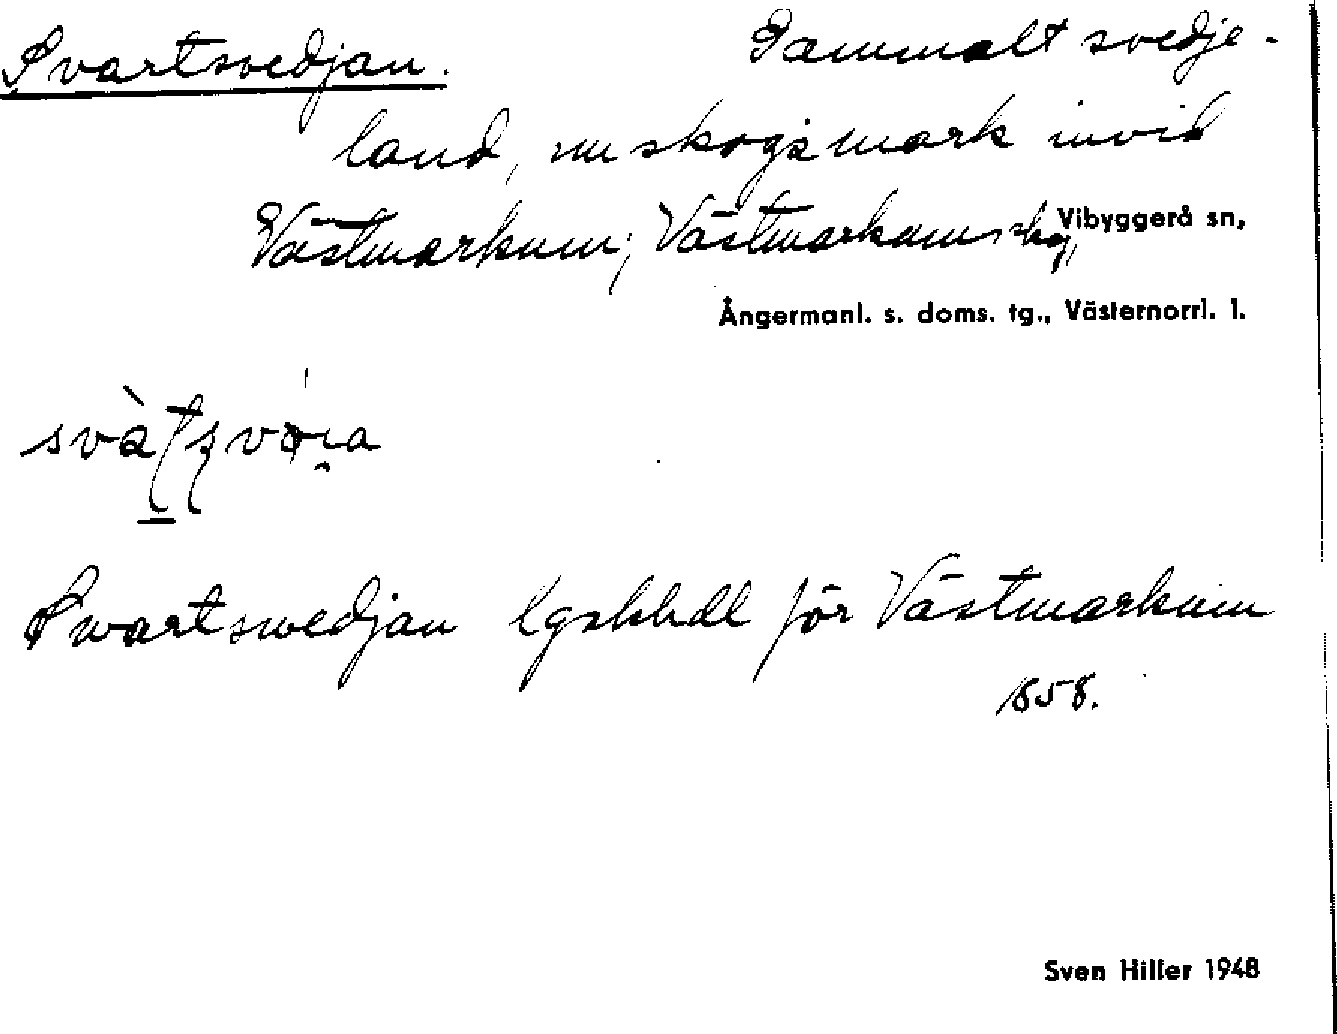 Svartsvedjan. Gammalt svedje-
land, nu skogsmark invid
Västmarkum; Västmarkums skog, Vibyggerå sn,
Ångermanl. s. doms. tg., Västernorrl. l.
Svartswedjan lgskhdl för Västmarkum
1858.
Sven Hiller 1948